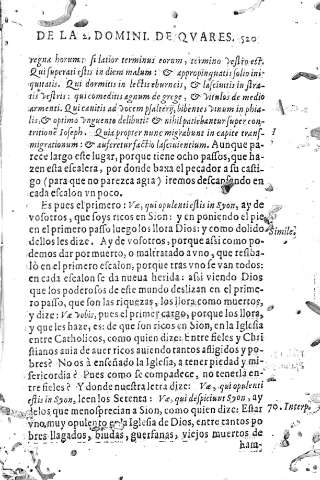 DE LA 2. DOMINI. DE QVARES. 520
regna horum: si latior terminus eorum, termino vestro est.
Qui superati estis in diem malum: & appropinquatis solio ini-
quitatis. Qui dormitis in lectis eburneis, & lasciuitis in stra-
tis vestris: qui comeditis agnum de grege, & vitulos de medio
armenti. Qui canitis ad vocem psalterij, bibentes vinum in phia-
lis, & optimo vnguento delibuti: & nihil patiebantur super con-
tritione Ioseph. Quia propter nunc migrabunt in capite trans-
migrationum: & auferetur factio lasciuientium. Aunque pa-
rece largo este lugar, porque tiene ocho passos, que ha-
zen esta escalera, por donde baxa el pecador a su casti-
go (para que no parezca agia) iremos descansando en
cada escalon vn poco.
Es pues el primero: Væ, qui opulenti estis in Syon, ay de
vosotros, que soys ricos en Sion: y en poniendo el pie
en el primero passo luego los llora Dios: y como dolido
dellos les dize. Ay de vosotros, porque assi como po-
demos dar por muerto, o maltratado a vno, que resba-
lò en el primero escalon, porque tras vno se van todos:
en cada escalon se da nueua herida: assi viendo Dios
que los poderosos de este mundo deslizan en el prime-
ro passo, que son las riquezas, los llora como muertos,
y dize: Væ vobis, pues el primer cargo, porque los llora,
y que les haze, es: de que son ricos en Syon, en la Iglesia
entre Catholicos, como quien dize: Entre fieles y Chri
stianos auia de auer ricos auiendo tantos afligidos y po-
bres? No os à enseñado la Iglesia, a tener piedad y mi-
sericordia? Pues como se compadece, no tenerla en-
tre fieles? Y donde nuestra letra dize: Væ, qui opulenti
estis in Syon, leen los Setenta: Væ, qui despiciunt Syon, ay
delos que menosprecian a Sion, como quien dize: Estar
vno, muy opulento en la Iglesia de Dios, entre tantos po
bres llagados, biudas, guerfanas, viejos muertos de
ham-
Simile.
70. Interp.